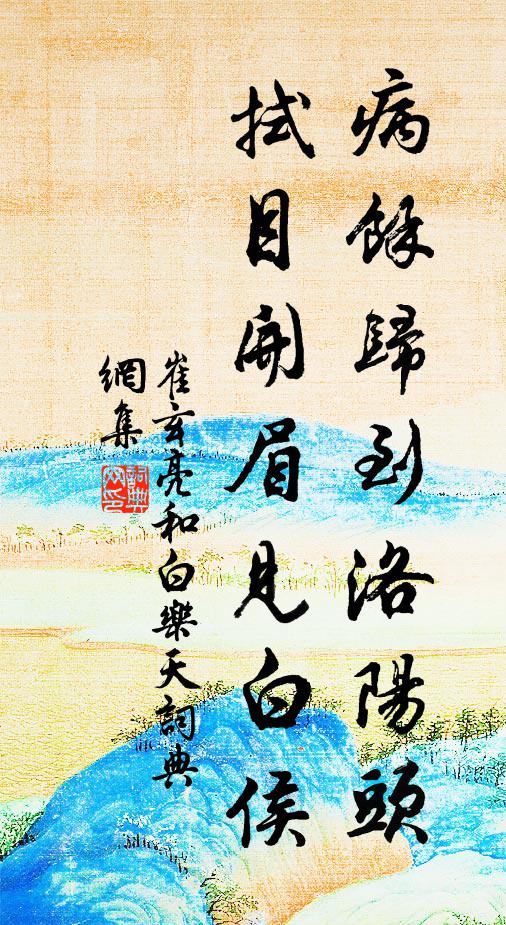 病餘歸到洛陽頭
拭目開眉見白侯
崔玄亮和白樂天詞典
網集